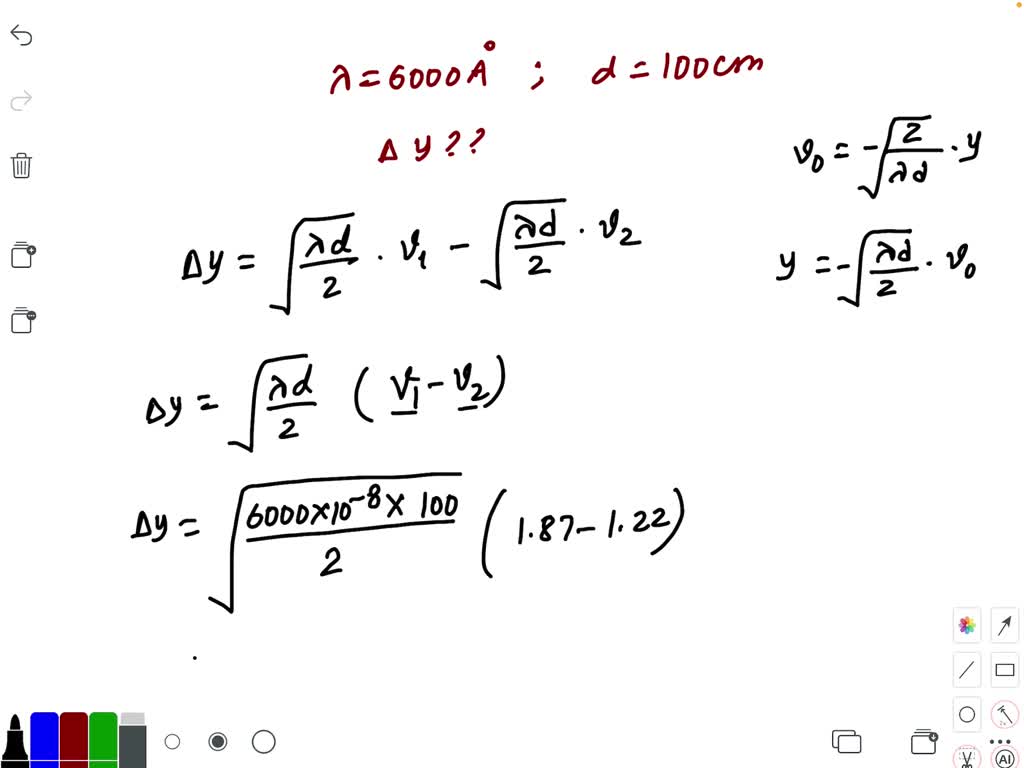 λ = 6000 Å ; d = 100 cm
Δy ??
v₀ = -√(2/λd) · y
Δy = √(λd/2) · v₁ - √(λd/2) · v₂
y = -√(λd/2) · v₀
Δy = √(λd/2) (v₁ - v₂)
Δy = √(6000×10⁻⁸ × 100/2) (1.87 - 1.22)
AI